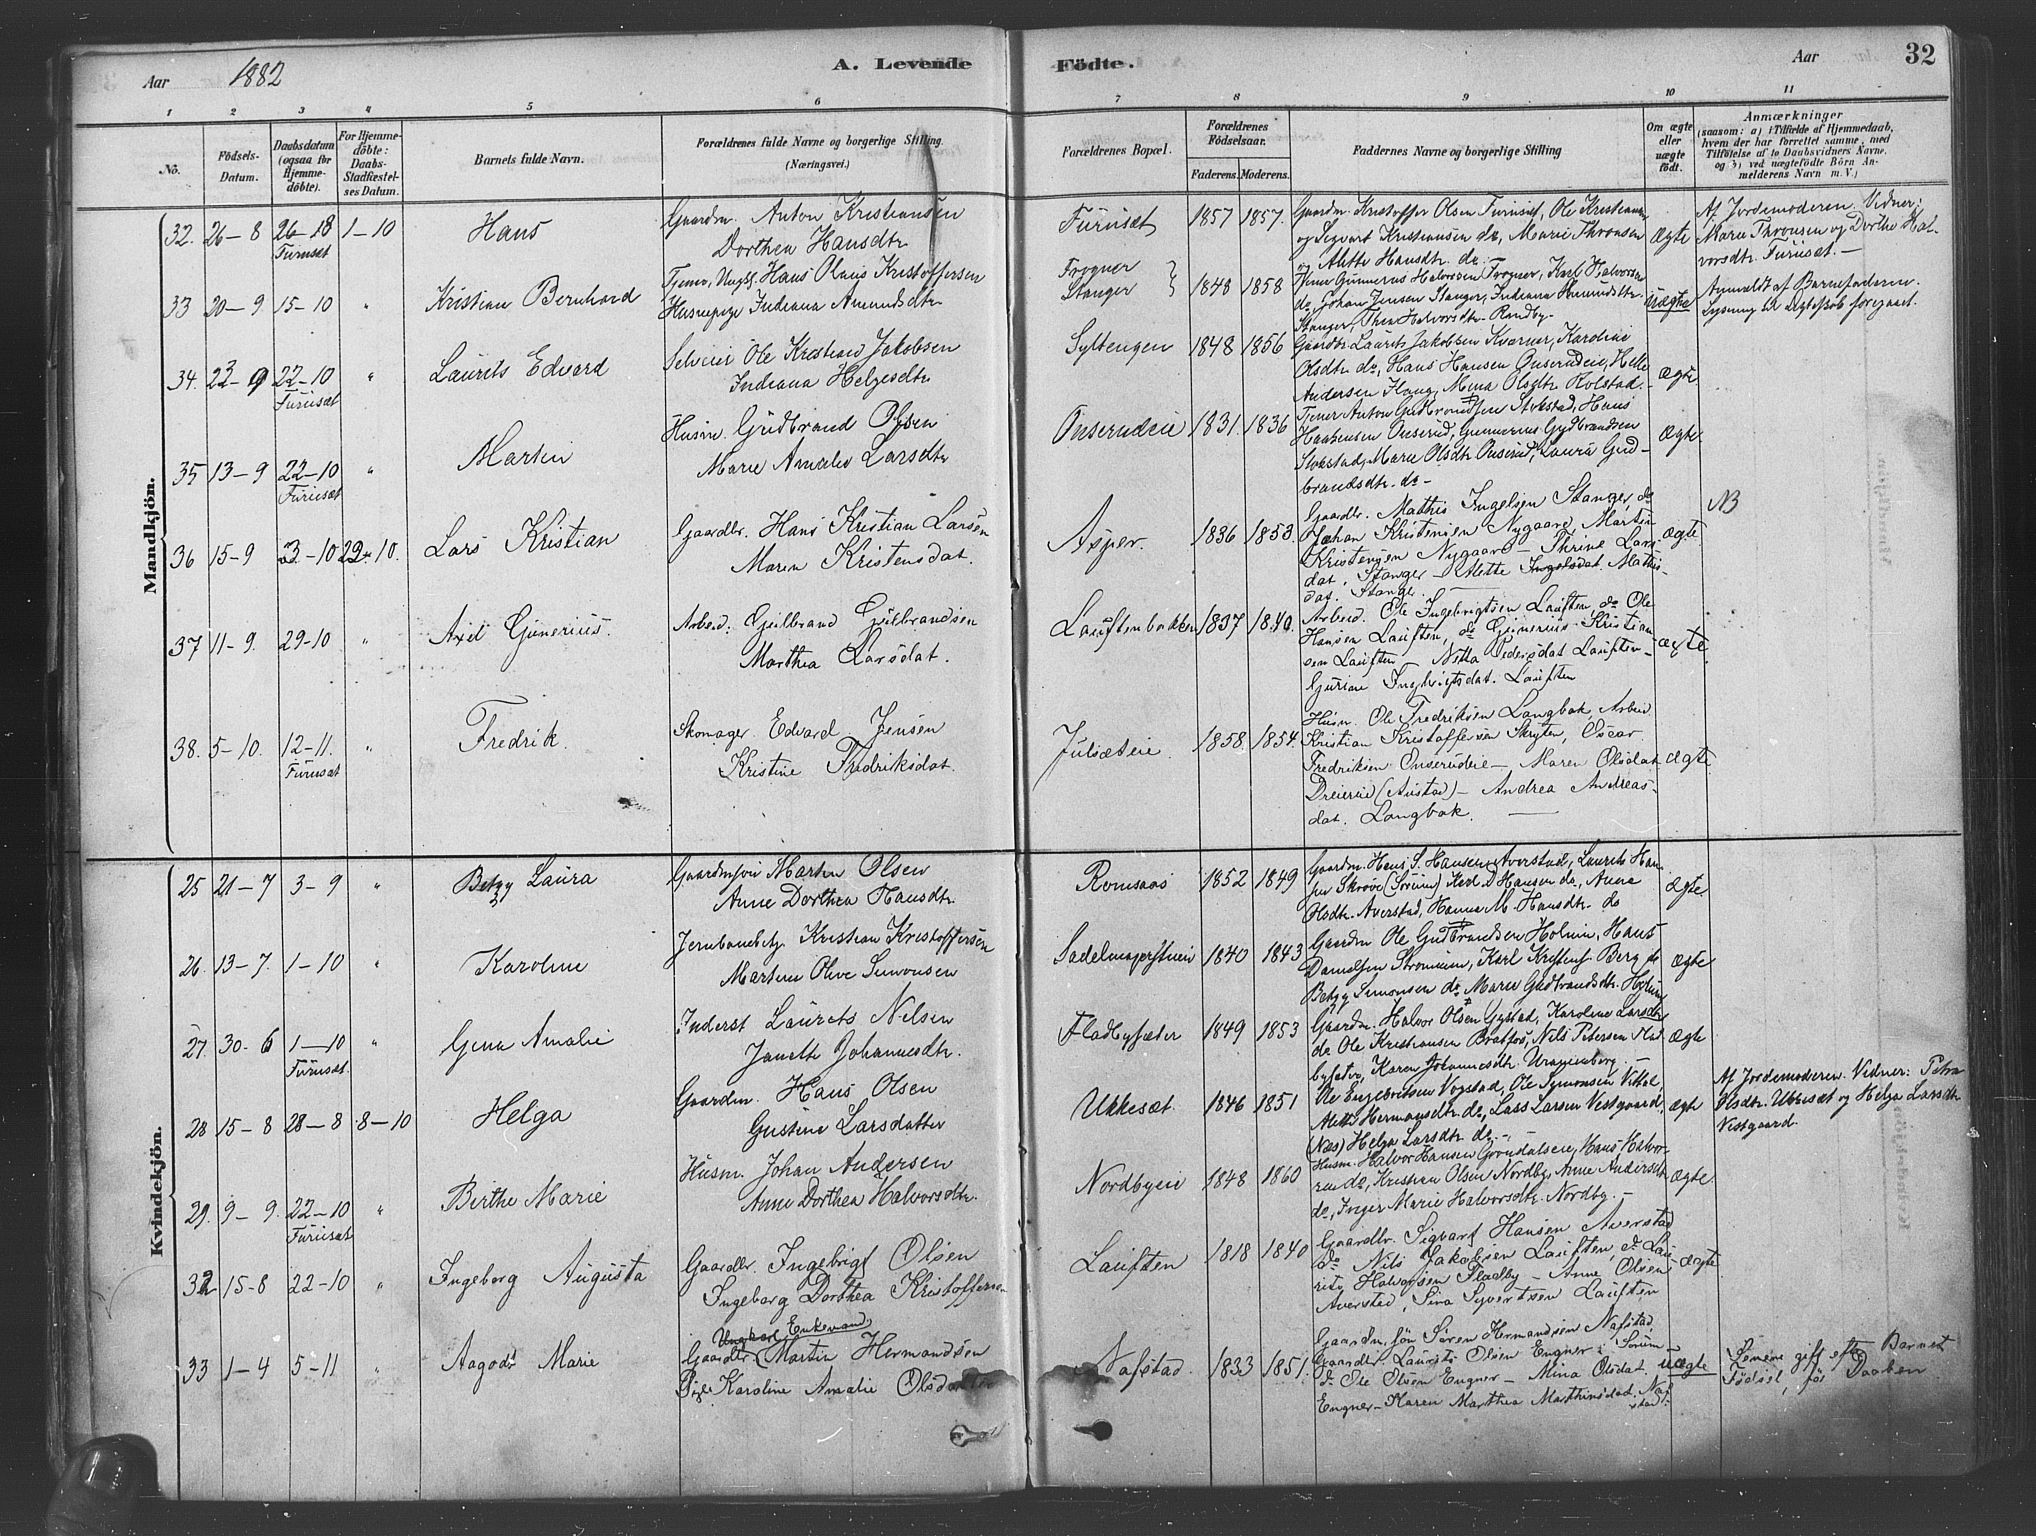 Aar 1882
A. Levende Födte.
Aar
32
1 2 3 4 5 6 7 8 9 10 11
No.
Födsels-
Datum.
Daabsdatum
(ogsaa for
Hjemme-
döbte).
For Hjemme-
döbte:
Daabs-
Stadfæstel-
ses Datum.
Barnets fulde Navn.
Forældrenes fulde Navne og borgerlige Stilling
(Næringsvei.)
Forældrenes Bopæl.
Forældrenes
Födselsaar.
Faderens. Moderens.
Faddernes Navne og borgerlige Stilling
Om ægte
eller
uægte
födt.
Anmærkninger
(saasom: a) i Tilfælde af Hjemmedaab,
hvem der har forrettet samme, med
Tilföielse af to Daabsvidners Navne,
og b) ved uægtefödte Börn An-
melderens Navn m. V.)
Mandkjön.
32. 26-8 26-18 1-10 Hans
Furuset
Gaardm. Anton Kristiansen
Dorthea Hansdtr
Furuset 1857 1857.
Gaardm. Kristoffer Olsen Furuset, Ole Kristiansen
og Sigvart Kristiansen do, Marie Thronsen
og Alette Hansdtr. do.
Ægte
Af Jordemoderen. Vidner:
Marie Thronsen og Dorthe Hal-
vorsdtr. Furuset. —
33 20-9 15-10 " Kristian Bernhard
Tjener, Ungk. Hans Olaus Kristoffersen
Huspige Indiana Amundsdtr
Frogner
Stanger } 1848 1858
Gunnerus Halvorsen Frogner, Karl Halvorsen
do, Johan Jensen Stanger, Indiana Amundsdtr.
Stanger, Thea Halvorsdtr. Randby-
uægte
Anmeldt af Barnefaderen.
Lysning til Ægteskab foregaaet.
34. 23-9 22-10 " Laurits Edvard
Furuset
Selveier Ole Kristian Jakobsen
Indiana Helgesdtr
Syltengen 1848 1856
Gaardbr. Laurits Jakobsen Kverner, Karoline
Olsdtr do, Hans Hansen Onserudeie, Helle
Andersen Haug, Mina Olsdtr Kolstad.
Ægte
35 13-9 22-10 " Martin
Furuset
Husm. Gudbrand Olsen
Marie Amalie Larsdtr
Onserudeie 1831 1836
Tjener Anton Gudbrandsen Stokstad, Hans
Haakensen Onserud, Gunnerus Gudbrandsen
Stokstad, Marie Olsdtr Onserud, Laura Gud-
brandsdtr. do-
Ægte
36 15-9 3-10 29-10. Lars Kristian
Gaardbr. Hans Kristian Larsen
Maren Kristensdat.
Asper. 1836 1853.
Gaardbr. Mathis Ingelsen Stanger, do
Johan Kristensen Nygaard, Martin
Kristensen Nygaard — Thrine Lars-
dat. Stanger — Alette Ingelsdat. Mathis-
dat. Stange. —
ægte.
NB
37 11-9. 29-10 " Axel Gunerius.
Arbeid. Gulbrand Gulbrandsen
Marthea Larsdat.
Lauftenbakken 1837 1840.
Arbeid. Ole Ingebrigtsen Lauften, do Ole
Hansen Lauften, do Gunerius Kristian-
sen Lauften — Netta Pedersdat Lauften-
Gurine Ingbrigtsdat. Lauften
ægte.
38. 5-10. 12-11. " Fredrik.
Furuset
Skomager Edvard Jensen
Kristine Fredriksdat.
Julseteie 1858. 1854.
Husm. Ole Fredriksen Langbak, Arbeid
Kristian Kristoffersen Skryten, Oscar
Fredriksen Onserudeie — Maren Olsdat
Dreierud (Austad) — Andrea Andreas-
dat. Langbak.
ægte.
Kvindekjön.
25 21-7 3-9 " Betzy Laura
Gaardmsön Marten Olsen
Anne Dorthea Hansdtr.
Romsaas 1852 1849
Gaardm. Hans S. Hansen Averstad, Laurits Han-
sen Skrove (Sörum) Karl D Hansen do, Anne
Olsdtr. Averstad, Hanna M. Hansdtr. do
ægte.
26. 13-7. 1-10 " Karoline
Jernbanebetj. Kristian Kristoffersen
Martine Olive Simonsen
1840 1843
Gaardm Ole Gudbrandsen Holum, Hans
Danielsen Strommen, Karl Berg do
Betzy Simonsen do. Marie Gudbrandsdtr. Holum
Ægte
27. 30-6 1-10 " Gina Amalie
Furuset.
Inderst Laurits Nilsen
Janette Johannesdtr.
Fladbysæter 1849 1853
Gaardm. Halvor Olsen Gystad, Karoline Larsdtr
do. Ole Kristiansen Bratfos, Nils Petersen Flad-
bysæter, Karen Johannesdtr. Uranienborg. —
Ægte
28 15-8 28-8 8-10 Helga
Gaardm. Hans Olsen
Gustine Larsdatter
Ukkesæt 1846 1851
Ole Engebretsen Vogstad, Ole Symonsen Vittal
Alette Hermansdtr. do, Lars Larsen Vestgaard,
(Næs) Helga Larsdtr. do. -
ægte
Af Jordemoderen. Vidner: Petra
Olsdtr. Ukkesæt og Helga Larsdtr
Vestgaard.
29. 9-9. 22-10 " Birthe Marie
Furuset
Husm. Johan Andersen
Anne Dorthea Halvorsdtr.
Nordbyeie 1848 1860
Husm. Halvor Hansen Grondalseie, Hans Halvor-
sen do, Kristian Olsen Nordby, Anne Andersdtr
do, Inger Marie Halvorsdtr. Nordby. -
ægte.
32 15-8 22-10 " Ingeborg Augusta
Gaardbr. Ingebrigt Olsen
Ingeborg Dorthea Kristoffersen
Lauften 1818 1840
Gaardbr. Sigvart Hansen Averstad
do Nils Jakobsen Lauften, do Lau-
rits Halvorsen Fladby — Anne Olsen
Averstad, Sina Syvertsen Lauften
ægte
33 1-4 5-11 " Aagodt Marie
Ungkarl Enkemand
Gaardbr. (Martin Hermansen
Pige Karoline Amalie Olsdatter
Nafstad 1833 1851.
Gaardm. sön Sören Hermansen Nafstad
Gaardbr. Laurits Olsen Engner i Sörum —
do Ole Olsen Engner — Mina Olsdat.
Engner — Karen Marthea Marthinsdat. Naf-
stad
uægte
gift efter Barnets
Födsel, för Daaben